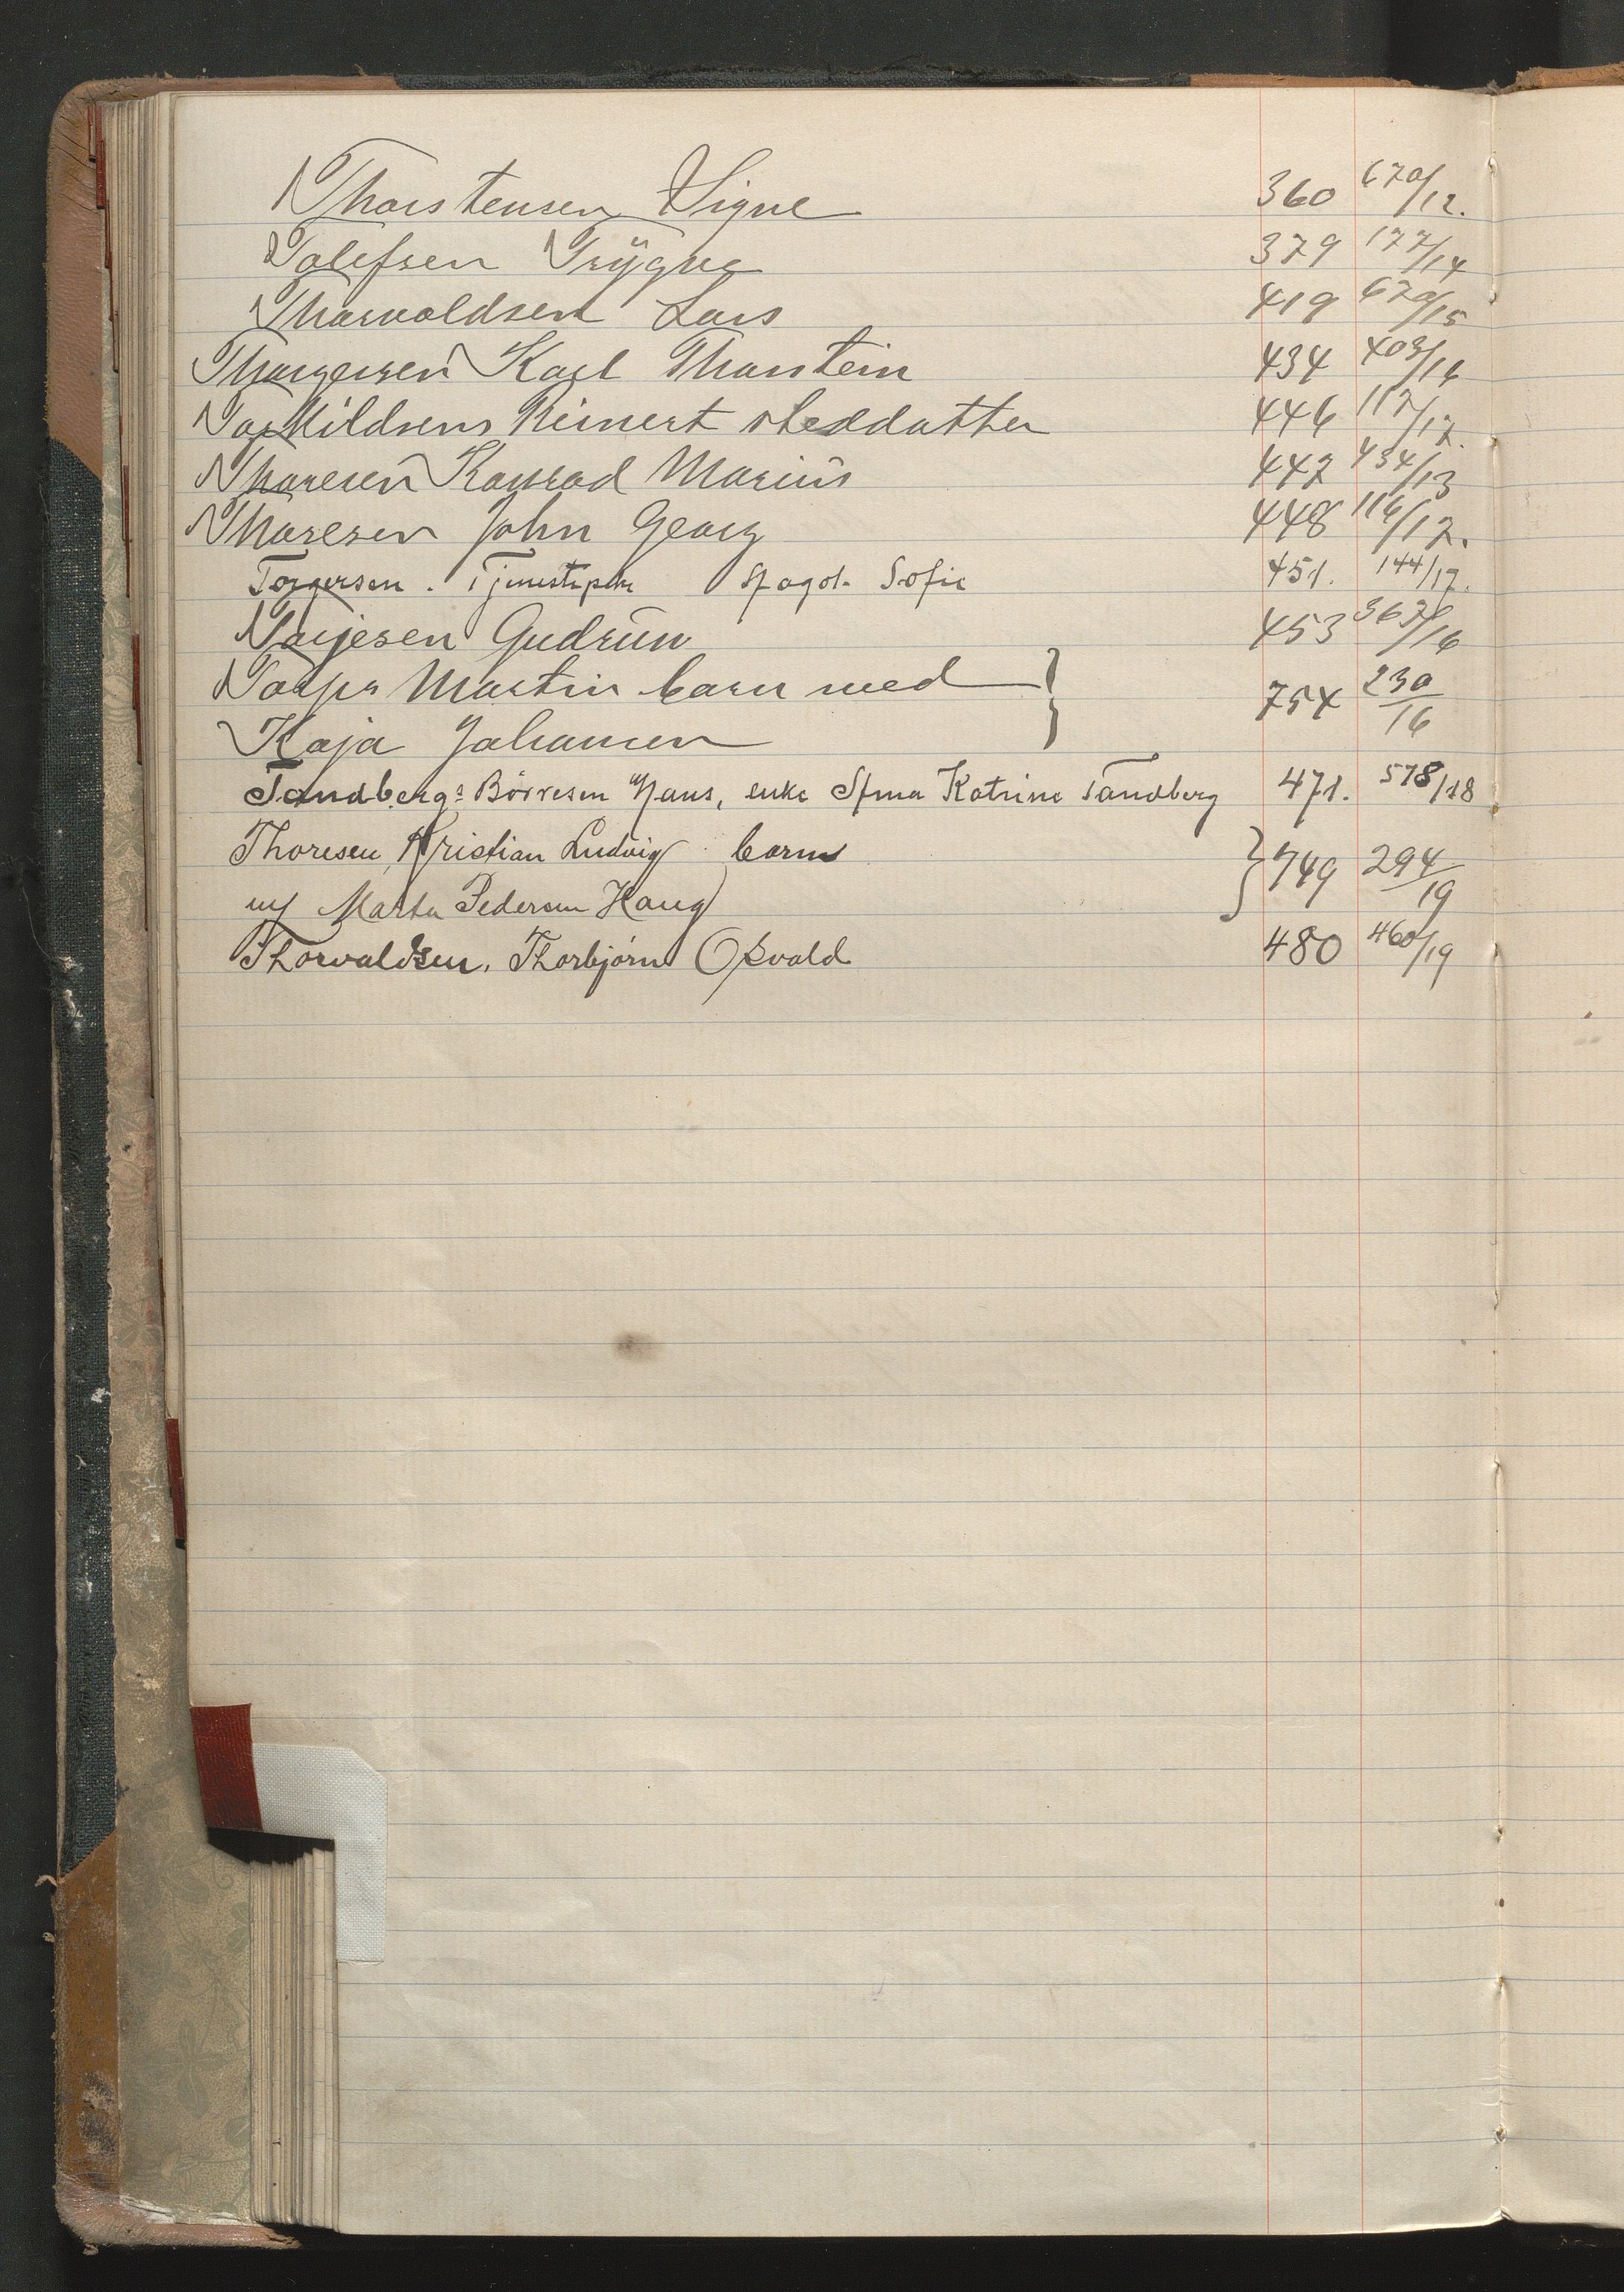 Thorstensen Signe 360 670/12.
Tolefsen Trygve 379 177/14
Thorvaldsen Lars 419 670/15
Thorgersen Karl Thorstein 434 403/16
Torkildsens Reinert steddatter 446 117/17.
Thoresen Konrad Marius 447 434/13
Thoresen John Georg 448 116/17.
Torgersen. Tjenestepike Sofie 451. 144/17.
Torjesen Gudrun 453 367/16
Torps Martin barn med } 754 230/16
Kaja Johansen
Tandbergs Börresen Hans, enke Katrine Tandberg 471. 578/18
Thoresen, Kristian Ludvig barn } 749 294/19
m/ Marta Pedersen Haug
Thorvaldsen, Thorbjørn Osvald 480 460/19